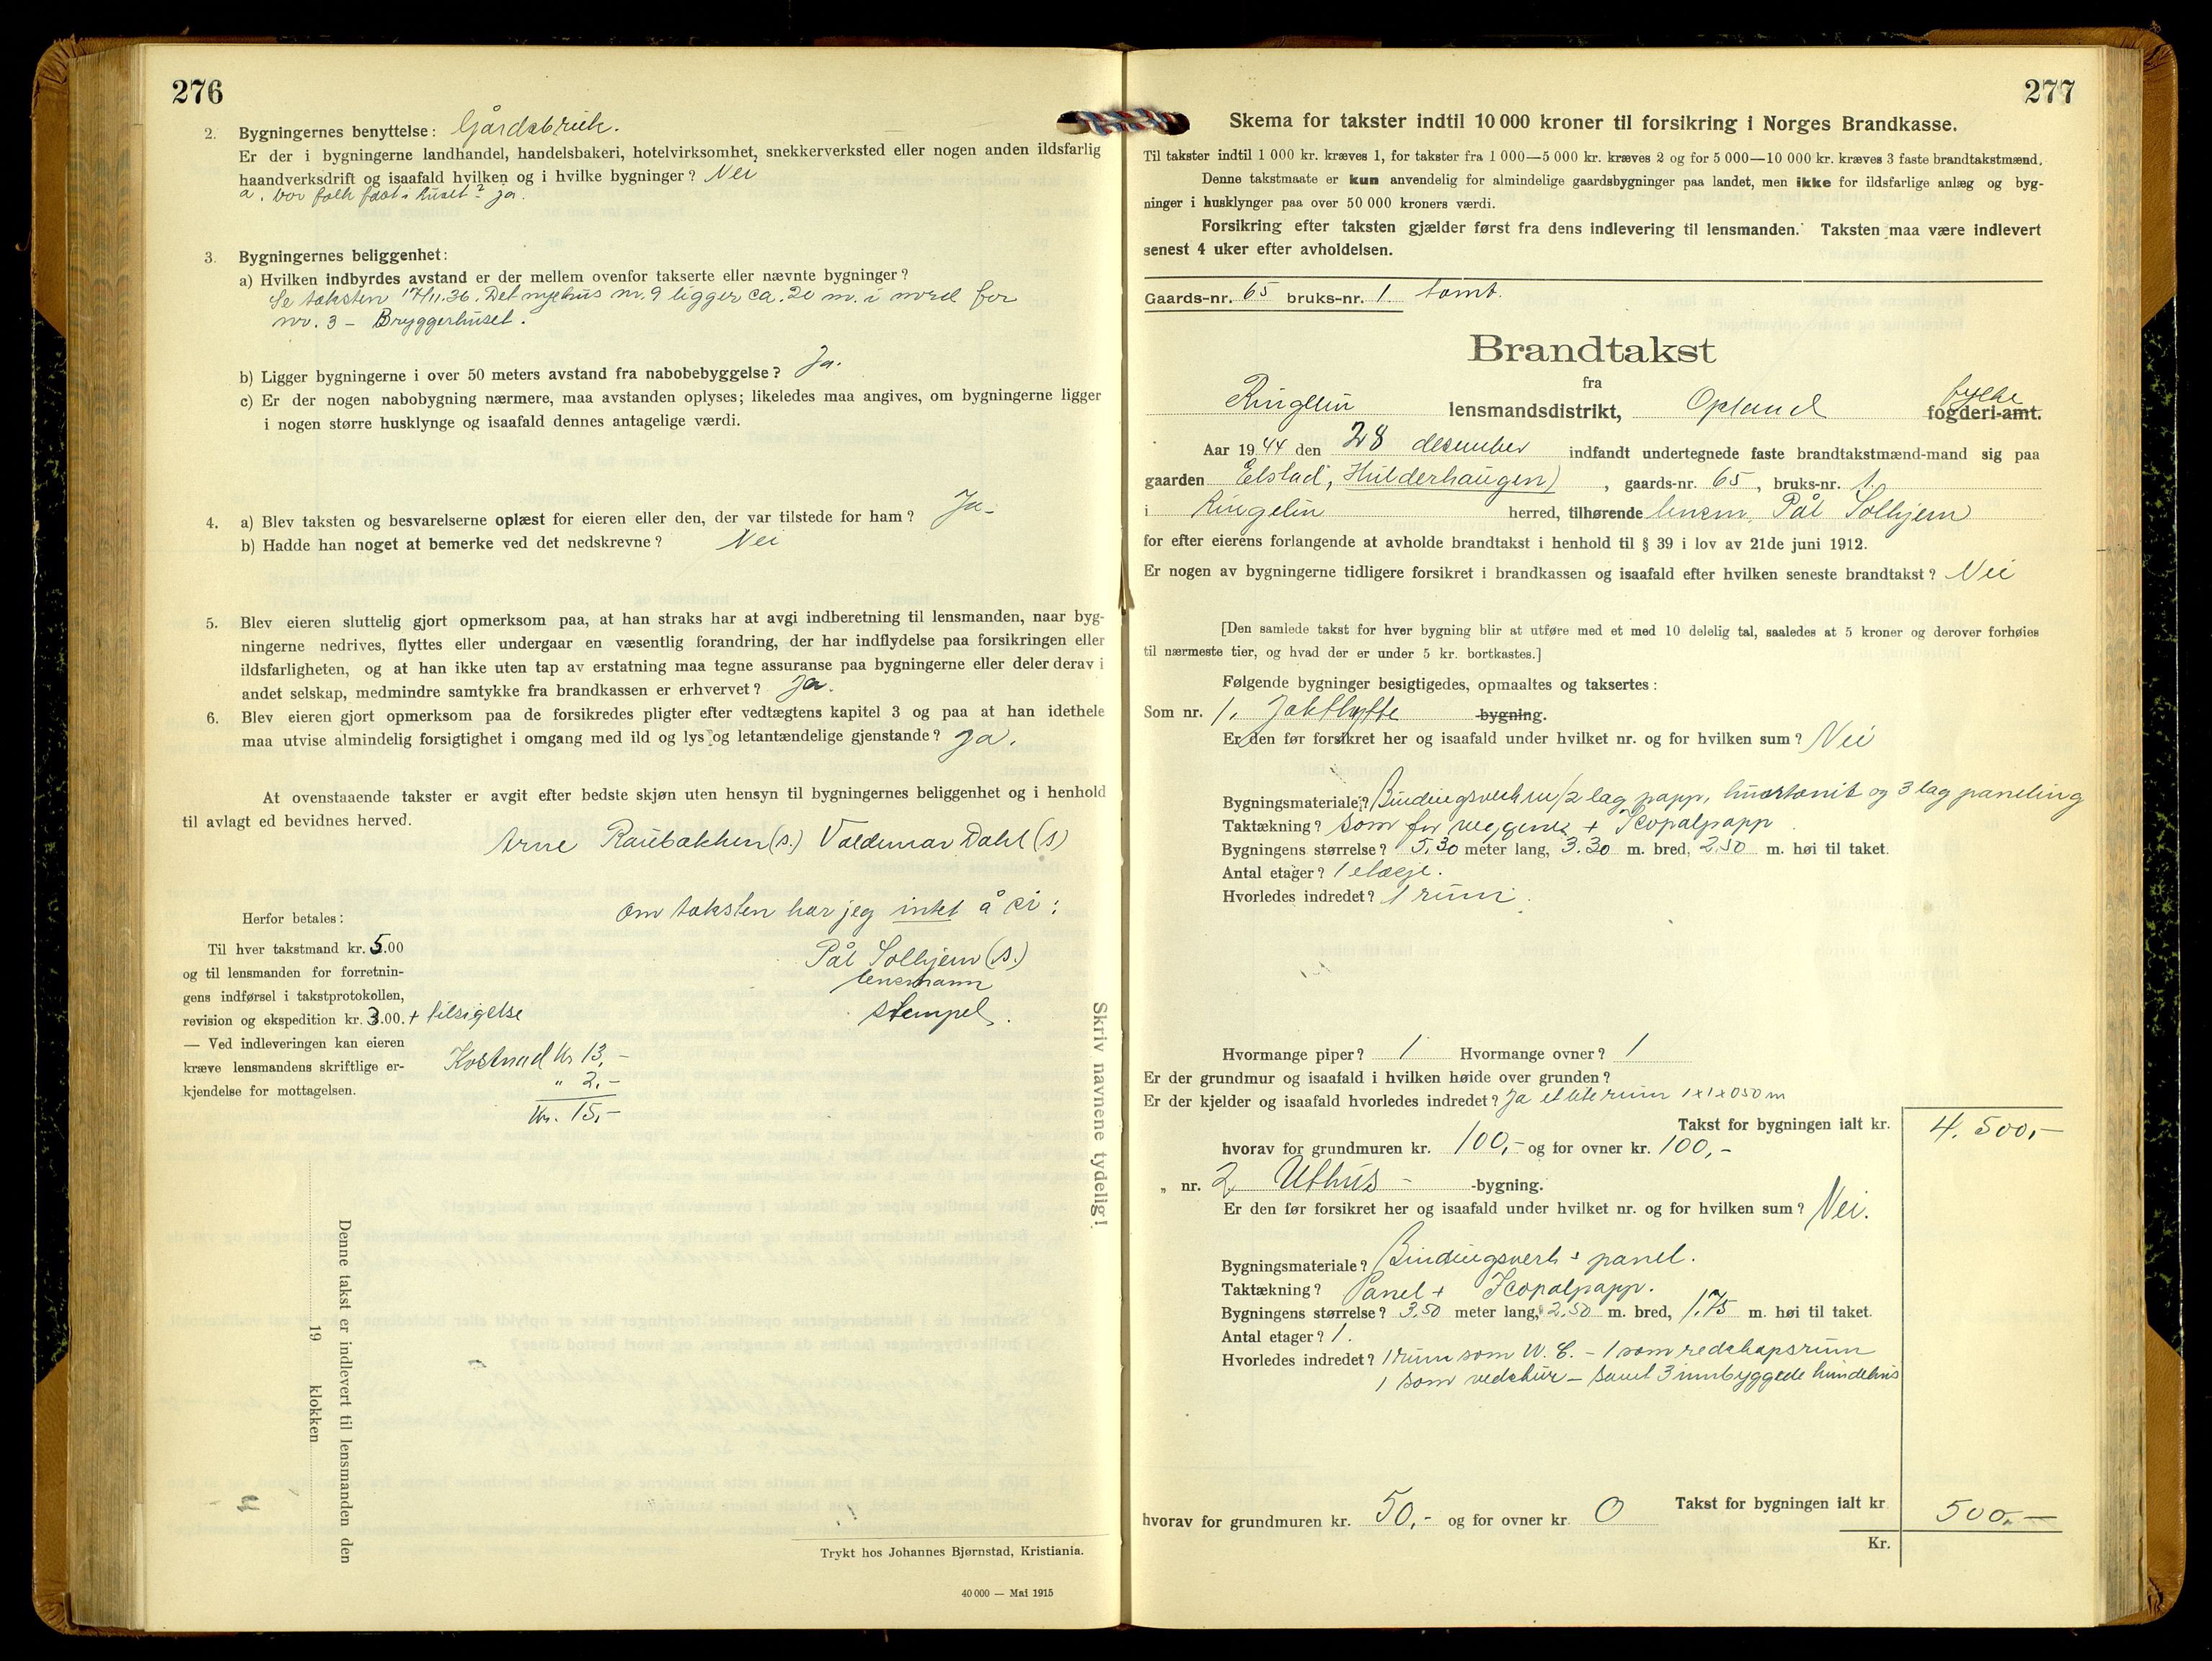 276
2. Bygningernes benyttelse: Gårdsbruk.
Er der i bygningerne landhandel, handelsbakeri, hotelvirksomhet, snekkerverksted eller nogen anden ildsfarlig
haandverksdrift og isaafald hvilken og i hvilke bygninger? Nei
a. bor folk fast i huset? ja.
3. Bygningernes beliggenhet:
a) Hvilken indbyrdes avstand er der mellem ovenfor takserte eller nævnte bygninger?
Se taksten 17/11.36. Det nye hus nr. 9 ligger ca. 20 m. i nord for
nr. 3 – Bryggerhuset.
b) Ligger bygningerne i over 50 meters avstand fra nabobebyggelse? Ja.
c) Er der nogen nabobygning nærmere, maa avstanden oplyses; likeledes maa angives, om bygningerne ligger
i nogen større husklynge og isaafald dennes antagelige værdi.
4. a) Blev taksten og besvarelserne oplæst for eieren eller den, der var tilstede for ham? Ja-
b) Hadde han noget at bemerke ved det nedskrevne? Nei
5. Blev eieren sluttelig gjort opmerksom paa, at han straks har at avgi indberetning til lensmanden, naar byg-
ningerne nedrives, flyttes eller undergaar en væsentlig forandring, der har indflydelse paa forsikringen eller
ildsfarligheten, og at han ikke uten tap av erstatning maa tegne assuranse paa bygningerne eller deler derav i
andet selskap, medmindre samtykke fra brandkassen er erhvervet? Ja.
6. Blev eieren gjort opmerksom paa de forsikredes pligter efter vedtægtens kapitel 3 og paa at han idethele
maa utvise almindelig forsigtighet i omgang med ild og lys og letantændelige gjenstande? Ja.
At ovenstaaende takster er avgit efter bedste skjøn uten hensyn til bygningernes beliggenhet og i henhold
til avlagt ed bevidnes herved.
Arne Raubakken (s.) Valdemar Dahl (s)
Om taksten har jeg intet å si:
Pål Solhjem (s.)
lensmann
stempel.
Herfor betales:
Til hver takstmand kr. 5.00
og til lensmanden for forretnin-
gens indførsel i takstprotokollen,
revision og ekspedition kr. 3.00. + tilsigelse
— Ved indleveringen kan eieren
kræve lensmandens skriftlige er-
kjendelse for mottagelsen.
Kostnad kr 13,-
" 2.-
Kr. 15,-
Skriv navnene tydelig!
Denne takst er indlevert til lensmanden den
19 klokken
Trykt hos Johannes Bjørnstad, Kristiania.
40 000 — Mai 1915
277
Skema for takster indtil 10 000 kroner til forsikring i Norges Brandkasse.
Til takster indtil 1 000 kr. kræves 1, for takster fra 1 000—5 000 kr. kræves 2 og for 5 000—10 000 kr. kræves 3 faste brandtakstmænd.
Denne takstmaate er kun anvendelig for almindelige gaardsbygninger paa landet, men ikke for ildsfarlige anlæg og byg-
ninger i husklynger paa over 50 000 kroners værdi.
Forsikring efter taksten gjælder først fra dens indlevering til lensmanden. Taksten maa være indlevert
senest 4 uker efter avholdelsen.
Gaards-nr. 65 bruks-nr. 1. tomt.
Brandtakst
fra
Ringebu lensmandsdistrikt, Opland fylke fogderi-amt.
Aar 1944 den 28 desember indfandt undertegnede faste brandtakstmænd-mand sig paa
gaarden Elstad, Hulderhaugen) , gaards-nr. 65, bruks-nr. 1.
i Ringebu herred, tilhørende lensm. Pål Solhjem
for efter eierens forlangende at avholde brandtakst i henhold til § 39 i lov av 21de juni 1912.
Er nogen av bygningerne tidligere forsikret i brandkassen og isaafald efter hvilken seneste brandtakst? Nei
[Den samlede takst for hver bygning blir at utføre med et med 10 delelig tal, saaledes at 5 kroner og derover forhøies
til nærmeste tier, og hvad der er under 5 kr. bortkastes.]
Følgende bygninger besigtigedes, opmaaltes og taksertes:
Som nr. 1. Jakthytte -bygning.
Er den før forsikret her og isaafald under hvilket nr. og for hvilken sum? Nei
Bygningsmateriale? Bindingsverk m/2 lag papp, huntonit og 3 lag paneling
Taktækning? som for veggene + Icopalpapp
Bygningens størrelse? 5,30 meter lang, 3.30 m. bred, 2,50 m. høi til taket.
Antal etager? 1 etasje.
Hvorledes indredet? 1 rum.
Hvormange piper? 1 Hvormange ovner? 1
Er der grundmur og isaafald i hvilken høide over grunden?
Er der kjelder og isaafald hvorledes indredet? Ja et lite rum 1x1x0 50 m
Takst for bygningen ialt kr. 4.500,-
hvorav for grundmuren kr. 100,- og for ovner kr. 100,-
„ nr. 2 Uthus - -bygning.
Er den før forsikret her og isaafald under hvilket nr. og for hvilken sum? Nei.
Bygningsmateriale? Bindingsverk + panel.
Taktækning? Panel + Icopalpapp.
Bygningens størrelse? 3,50 meter lang, 2,50 m. bred, 1,75 m. høi til taket.
Antal etager? 1.
Hvorledes indredet? 1 rum som W.C. – 1 som redskapsrum
1 som vedskur – samt 3 innbyggede hundehus
Takst for bygningen ialt kr 500,-
hvorav for grundmuren kr. 50,- og for ovner kr. 0
Kr.